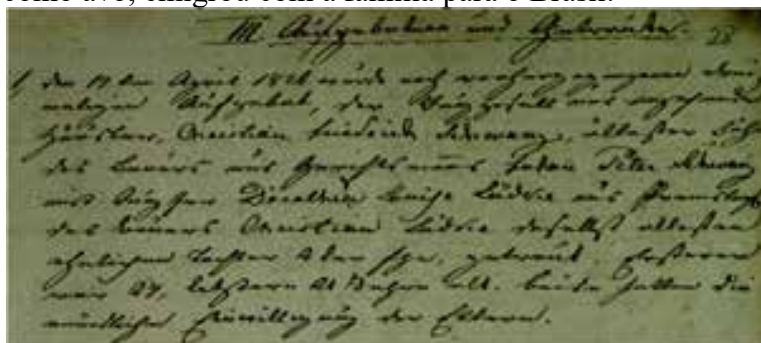 como avô, emigrou com a família para o Brasil.
III Aufgebotene und Getraute. 28
1 den 17ten April 18 wurde nach vorhergegangenem
maligen Aufgebot, der und angehende
Häusler, Christian Friedrich Schwanz, ältester Sohn
des Bauers und Gerichtsmanns Johan Peter
mit Jungfrau Dorothea Luise Lüdtke aus
des Bauers Christian Lüdtke daselbst ältesten
ehelichen Tochter der Ehe, getraut. Ersterer
war 27, letztere 21 Jahre alt. beide hatten die
mündliche Einwilligung der Eltern.